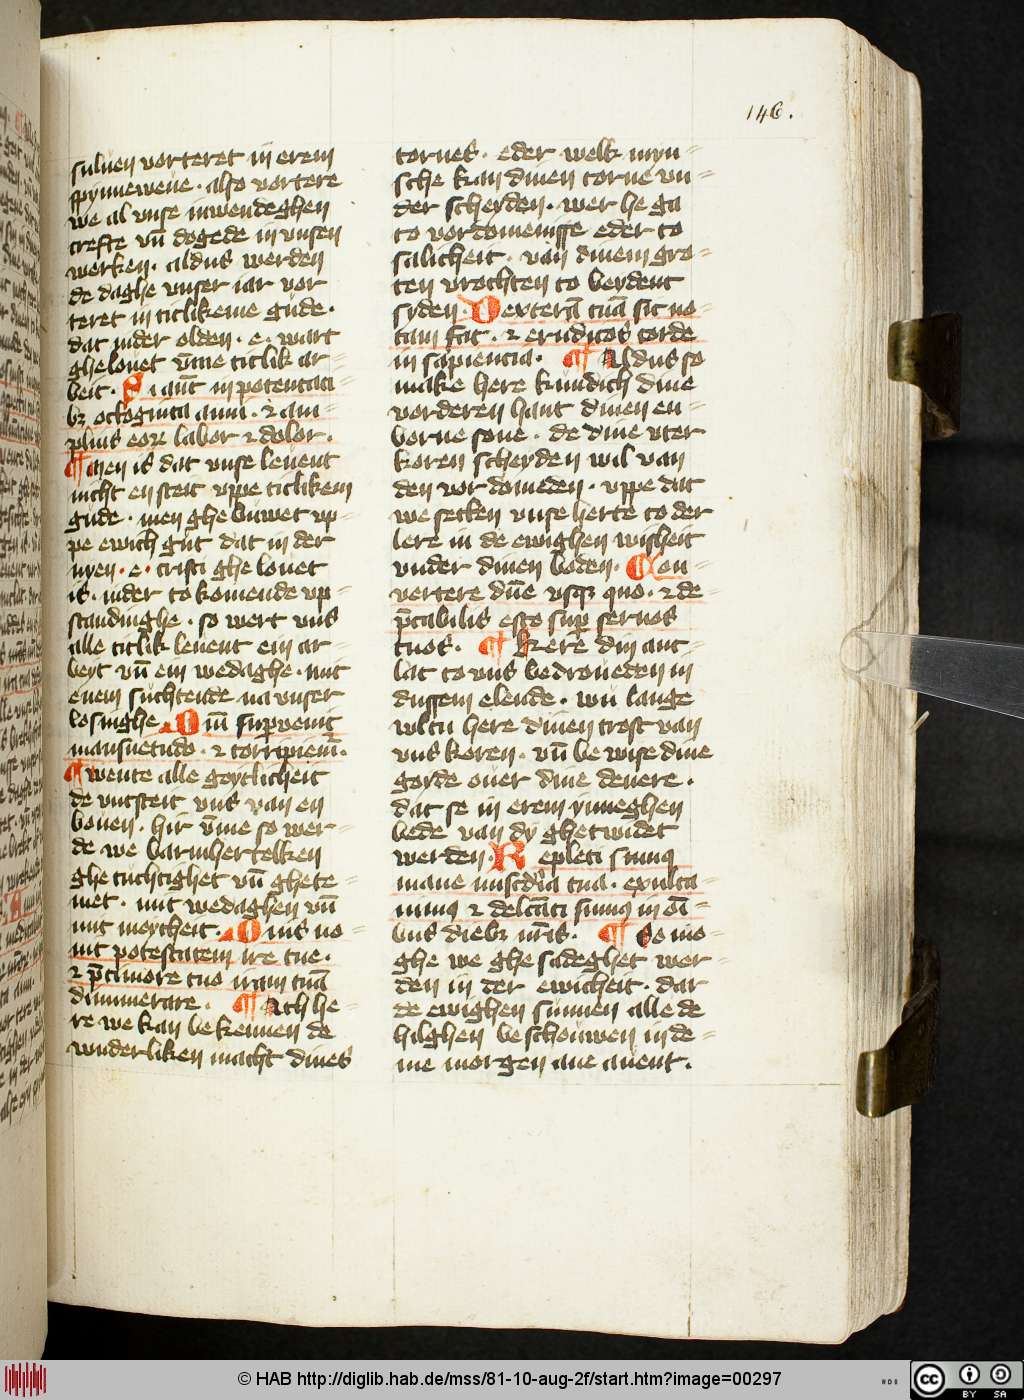 146.
suluen vorteret in erem
spynneweue · also vortere
we al vnse inwendeghen
crefte vn̄ dogede in vnsen
werken · aldus werden
de daghe vnser iar vor
teret in titlikeme gude ·
dat inder olden · e · wart
ghelouet vm̄e titlik ar-
beit · Si aut̄ in potentati
bꝫ octoginta anni · ⁊ am-
plius eoꝝ labor ⁊ dolor ·
¶ Men is dat vnse leuent
nicht en steit vppe titlikem
gude · men ghe buwet vp-
pe ewich gut dat in der
nyen · e · cristi ghe louet
is · inder to komende vp-
standinghe · so wert vns
alle titlik leuent ein ar-
beyt vn̄ ein wedaghe · mit
enem suchtende na vnser
losinghe Qm̄ supuenit
mansuetudo · ⁊ corripiem̄ ·
¶ wente alle goytlicheit
de vntsteit vns van en
bouen · hir vm̄e so wer-
de we barmhertelken
ghe tuchtighet vn̄ ghete-
met · mit wedaghen vn̄
mit moycheit · Quis no-
uit potestatem ire tue ·
⁊ p̄ timore tuo iram tuā
dinumerare · ¶ Ach he-
re we kan be kennen de
wnderliken macht dines
tornes · eder welk myn-
sche kan dinen torne vn-
der scheyden · wer he ga
to vordomenisse eder to
salicheit · van dinem gro-
ten vrochten to beydent
syden · Dexterā tuā sic no-
tam fac · ⁊ eruditos corde
in sapiencia · ¶ Aldus so
make here kundich dine
vorderen hant dinen en-
borne sone · de dine vter
koren scheyden wil van
den vor domeden · vppe dat
we setten vnse herte to der
lere in de ewighen wisheit
vnder dinen boden · Con-
uertere dn̄e vsqꝫ quo · ⁊ de
p̄cabilis esto sup seruos
tuos · ¶ kere din ant-
lat to vns bedroueden in
dussem elende · wu lange
wltu here dinen trost van
vns keren · vn̄ be wise dine
goyde ouer dine denere ·
dat se in erem ynneghen
bede van dy ghetwidet
werden · Repleti sumus
mane mīscd̄ia tua · exulta-
uimꝰ ⁊ delc̄ati sumꝰ in oī-
bus diebꝫ nr̄is · ¶ Se mo-
ghe we ghe sadeghet wer-
den in der ewicheit · dar
de ewighen sunnen alle de
hilghen be schouwen in de-
me morgen ane auent ·
© HAB http://diglib.hab.de/mss/81-10-aug-2f/start.htm?image=00297
HAB
cc BY SA